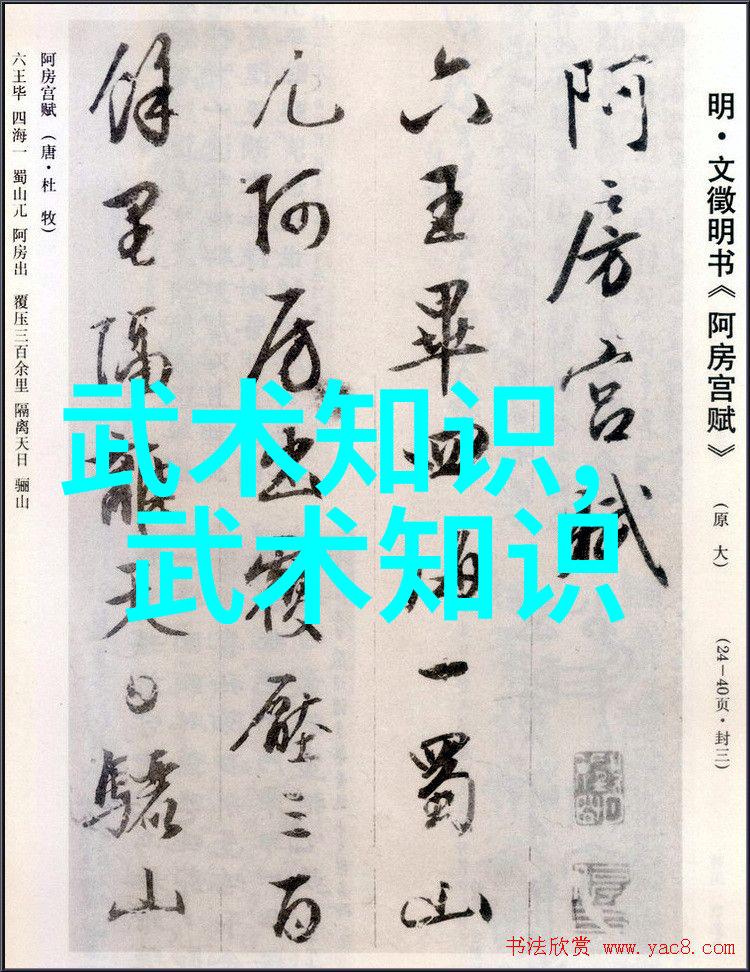 明·文徵明书《阿房宫赋》 (原大) (24—40页·封三)
阿房宫賦
六王畢四海一蜀山
兀阿房出覆壓三百
餘里隔離天日驪山
阿房宫赋（唐·杜 牧）
六王毕 四海一 蜀山兀 阿房出 覆压三百余里 隔离天日 骊山
武术知识,
武术知识
书法欣赏 www.yac8.com